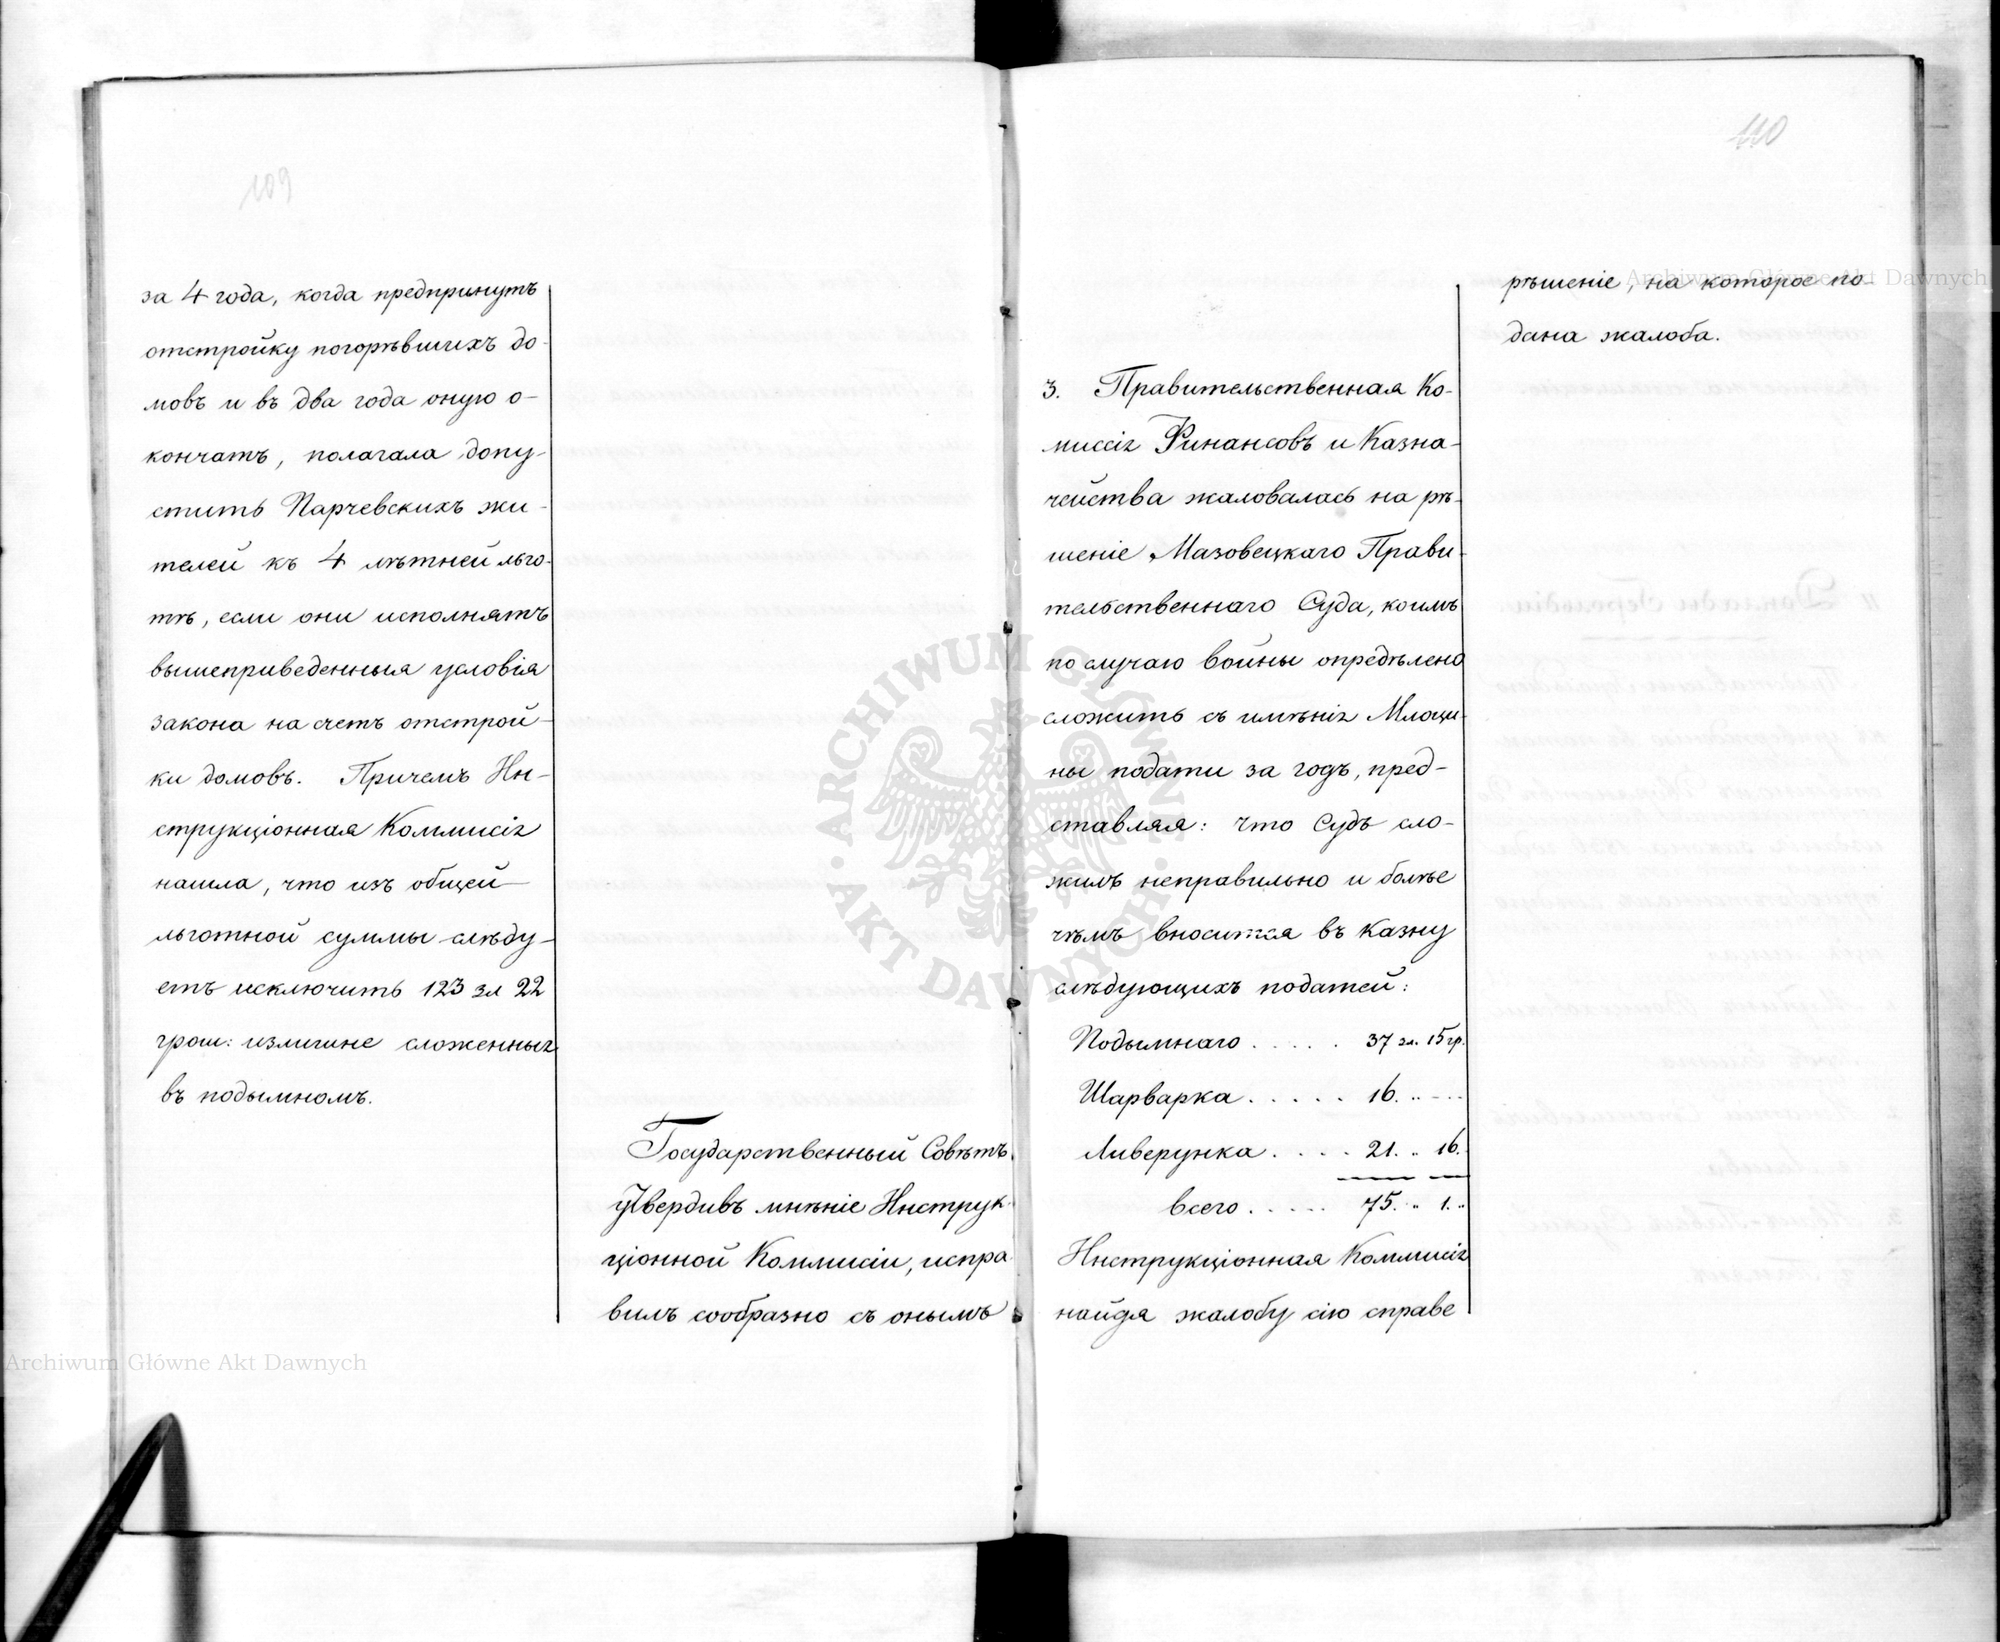 109
за 4 года, когда предпринутъ
отстройку погорѣвшихъ до-
мовъ и въ два года оную о-
кончатъ, полагала допу-
стить Парчевскихъ жи-
телей къ 4 лѣтней льго-
тѣ, если они исполнятъ
вышеприведенныя условія
закона на счетъ отстрой-
ки домовъ. Причемъ Ин-
струкціонная Коммисія
нашла, что изъ общей
льготной суммы слѣду-
етъ исключить 123 зл 22
грош: излишне сложенныя
въ подымномъ.
Государственный Совѣтъ
утвердивъ мнѣніе Инструк-
ціонной Коммисіи, испра
вилъ сообразно съ онымъ
110
рѣшеніе, на которое по-
дана жалоба.
3. Правительственная Ко-
миссія Финансовъ и Казна-
чейства жаловалась на рѣ-
шеніе Мазовецкаго Прави-
тельственнаго Суда, коимъ
по случаю войны опредѣлено
сложить съ имѣнія Млоци-
ны подати за годъ, пред-
ставляя: что Судъ сло-
жилъ неправильно и болѣе
чѣмъ вносится въ казну
слѣдующихъ податей:
Подымнаго . . . . . 37 зл. 15 гр.
Шарварка . . . . . 16. „ - -
Ливерунка . . . . 21. „ 16.
всего . . . . . 75. „ 1. „
Инструкціонная Коммисія
найдя жалобу сію справе
Archiwum Główne Akt Dawnych
Archiwum Główne Akt Dawnych
ARCHIWUM GŁÓWNE · AKT DAWNYCH ·